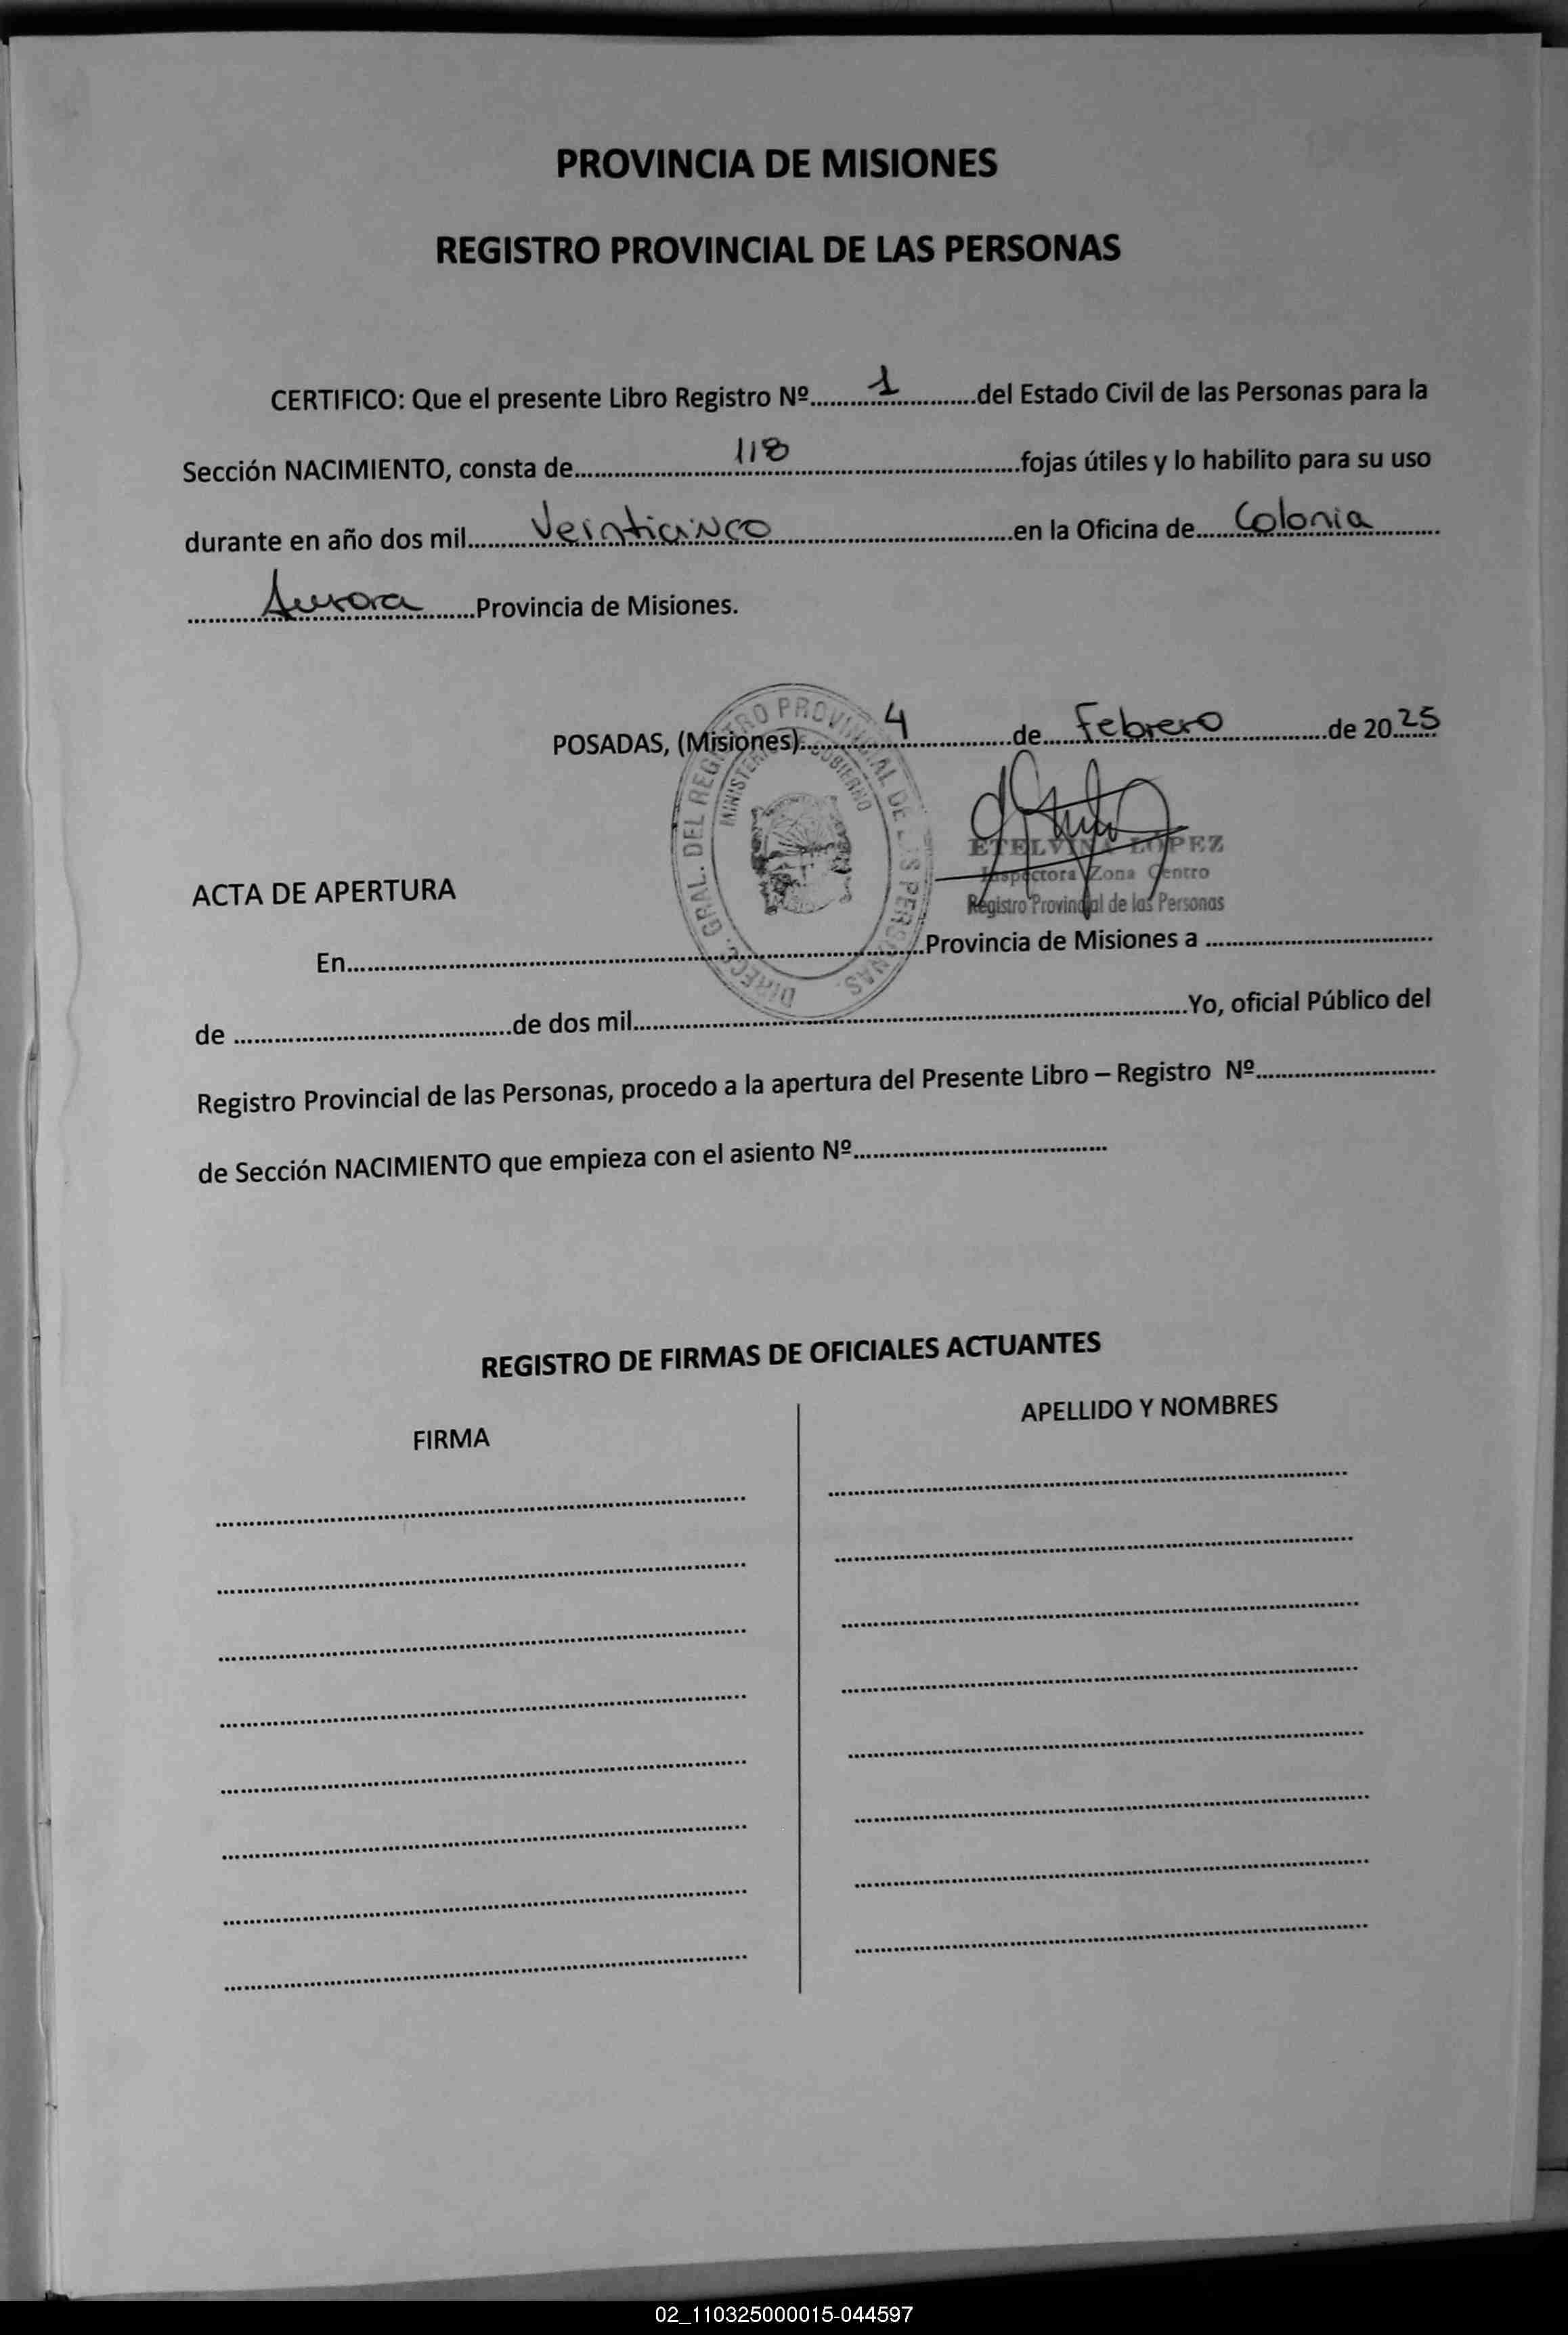 PROVINCIA DE MISIONES
REGISTRO PROVINCIAL DE LAS PERSONAS
CERTIFICO: Que el presente Libro Registro Nº..........1..........del Estado Civil de las Personas para la
Sección NACIMIENTO, consta de..........118..........fojas útiles y lo habilito para su uso
durante en año dos mil..........Veinticinco..........en la Oficina de..........Colonia..........
..........Aurora..........Provincia de Misiones.
POSADAS, (Misiones)..........4..........de..........Febrero..........de 20..25..
DIRECC. GRAL. DEL REGISTRO PROVINCIAL DE LAS PERSONAS.
MINISTERIO DE GOBIERNO
ETELVINA LOPEZ
Inspectora Zona Centro
Registro Provincial de las Personas
ACTA DE APERTURA
En....................Provincia de Misiones a ....................
de ....................de dos mil....................Yo, oficial Público del
Registro Provincial de las Personas, procedo a la apertura del Presente Libro – Registro Nº....................
de Sección NACIMIENTO que empieza con el asiento Nº....................
REGISTRO DE FIRMAS DE OFICIALES ACTUANTES
FIRMA
APELLIDO Y NOMBRES
02_110325000015-044597